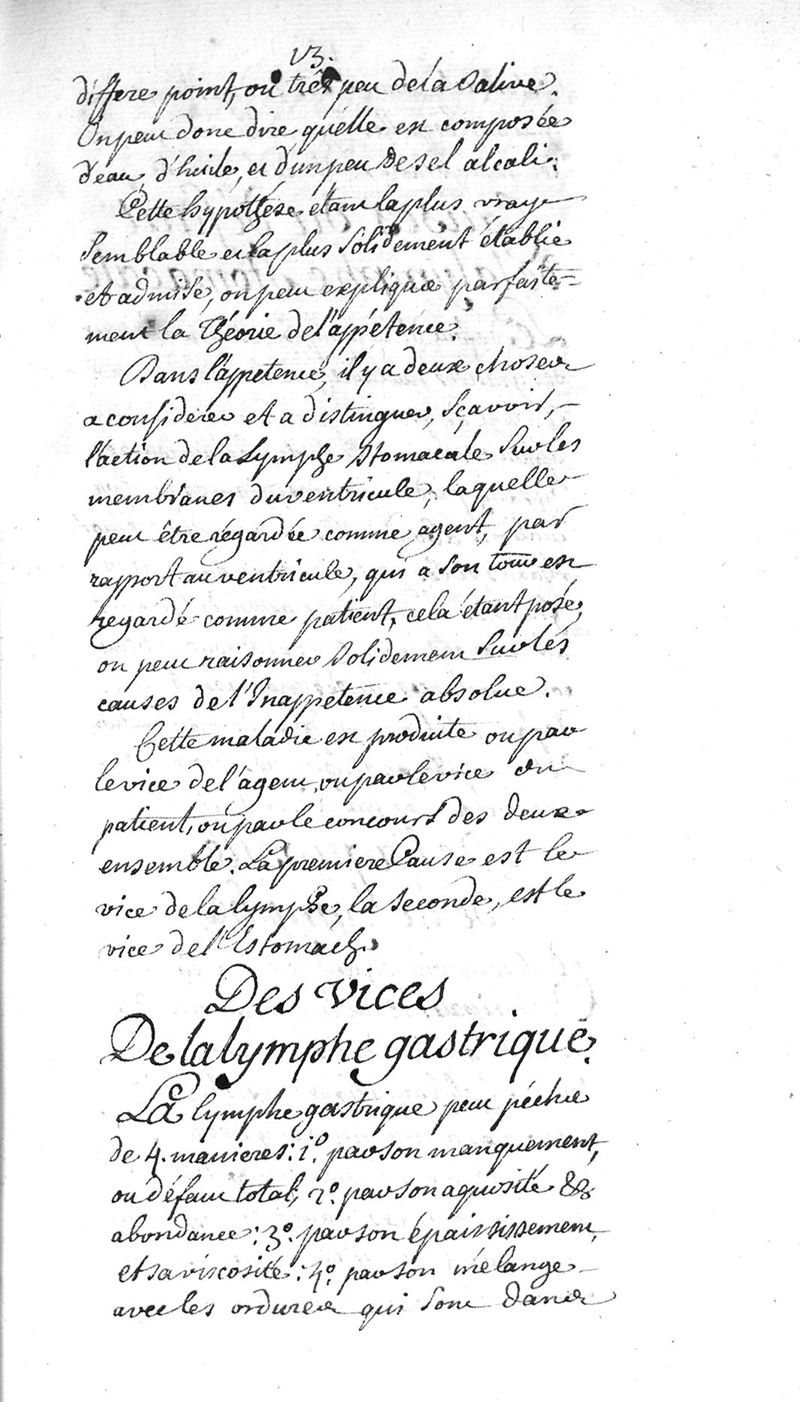 13.
differe point, ou très peu de la Salive.
On peut donc dire qu'elle est composée
d'eau, d'huile, et d'un peu de sel alcali.
Cette hypothèse etant la plus vray
Semblable et la plus Solidement établie
et admise, on peut expliquer parfaite=
ment la Théorie de l'appétence.
Dans l'appetence, il y a deux choses
a considerer et a distinguer, Sçavoir,
l'action de la Lymphe Stomacale Sur les
membranes du ventricule, laquelle
peut être régardée comme agent, par
rapport au ventricule, qui a son tour est
regardé comme patient, cela étant posé,
on peut raisonner Solidement Sur les
causes de l'Inappetence absolue.
Cette maladie est produite ou par
le vice de l'agent, ou par le vice du
patient, ou par le concours des deux
ensemble. La premiere Cause est le
vice de la lymphe, la Seconde, est le
vice de l'Estomach.
Des vices
De la lymphe gastrique.
La lymphe gastrique peut pécher
de 4. manieres: 1.º par son manquement,
ou défaut total; 2.º par son aquosité &
abondance: 3.º par son épaississement,
et sa viscosité: 4.º par son mélange
avec les ordures qui sont dans